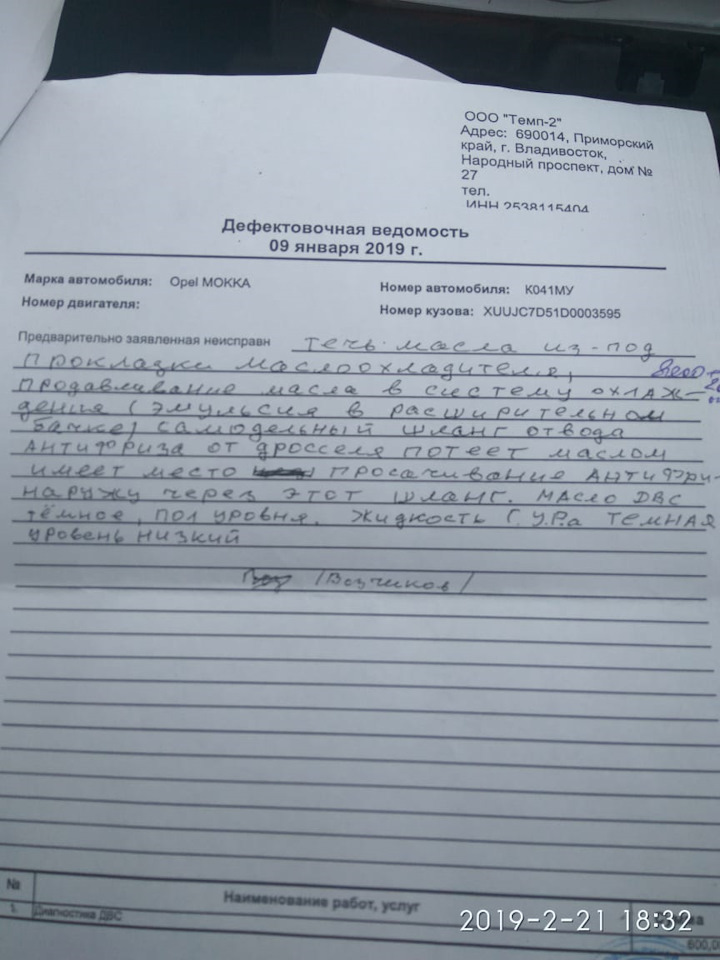 ООО "Темп-2"
Адрес: 690014, Приморский
край, г. Владивосток,
Народный проспект, дом №
27
тел.
ИНН 2538115404
Дефектовочная ведомость
09 января 2019 г.
Марка автомобиля: Opel МОККА
Номер автомобиля: К041МУ
Номер двигателя:
Номер кузова: XUUJC7D51D0003595
Предварительно заявленная неисправн течь масла из-под
прокладки маслоохладителя,
продавливание масла в систему охлаж-
дения (эмульсия в расширительном
бачке) самодельный шланг отвода
антифриза от дросселя потеет маслом
имеет место просачивание антифри-
наружу через этот шланг. Масло ДВС
тёмное, пол уровня. Жидкость Г.У.Ра темная
уровень низкий
/Возчиков/
№
Наименование работ, услуг
1. Диагностика ДВС
600,0
2019-2-21 18:32